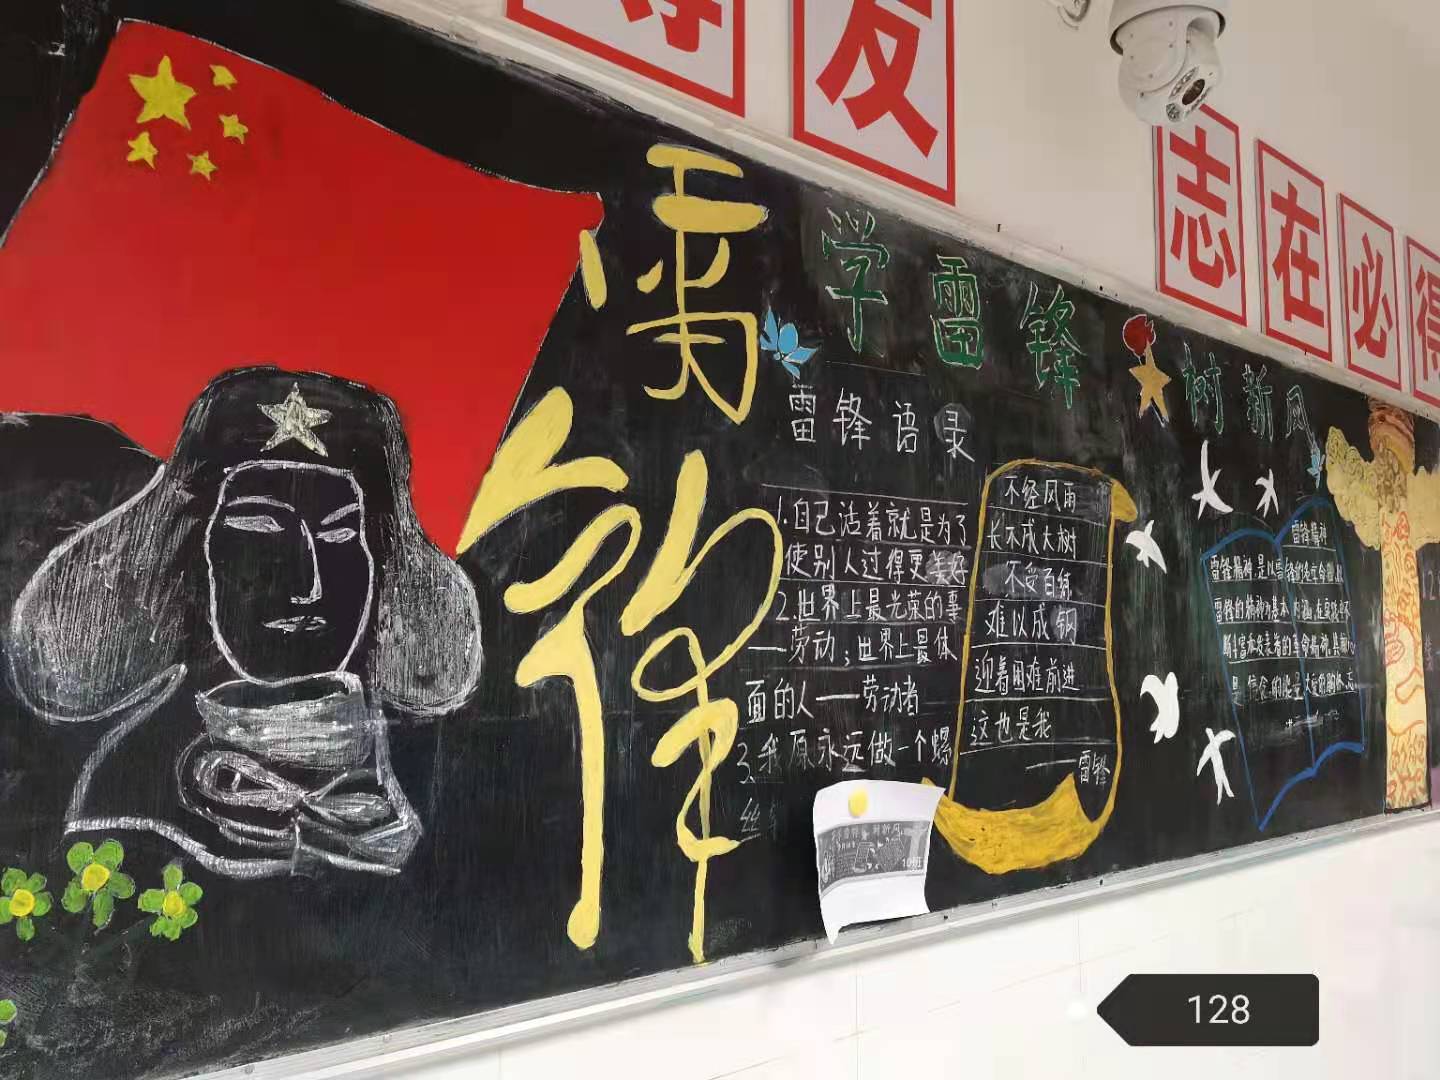 友
志在必得
雷
锋
学雷锋
树新风
雷锋语录
1.自己活着就是为了
使别人过得更美好
2.世界上最光荣的事
——劳动；世界上最体
面的人——劳动者
3.我愿永远做一个螺
丝
不经风雨
长不成大树
不受百练
难以成钢
迎着困难前进
这也是我
——雷锋
雷锋精神
雷锋精神，是以雷锋的
雷锋的精神为基本内涵，在实践中不
断丰富和发展着的革命精神，其
是
10班
128